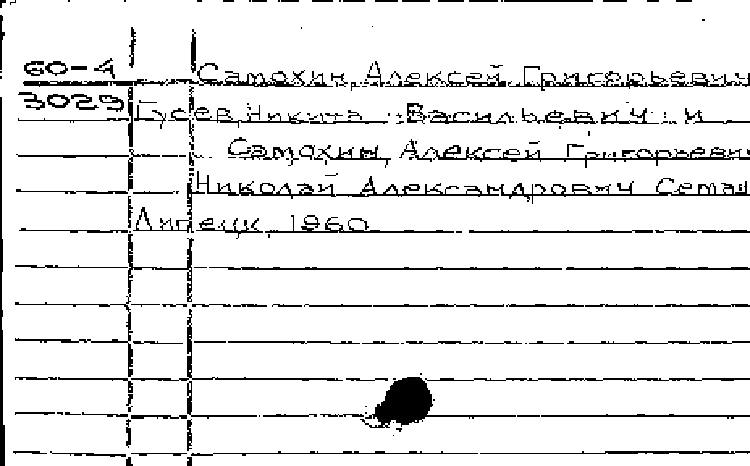 60-4 Самохин, Алексей Григорьевич
3029 Гусев, Никита Васильевич и
Самохин, Алексей Григорьевич
Николай Александрович Семаш
Липецк, 1960